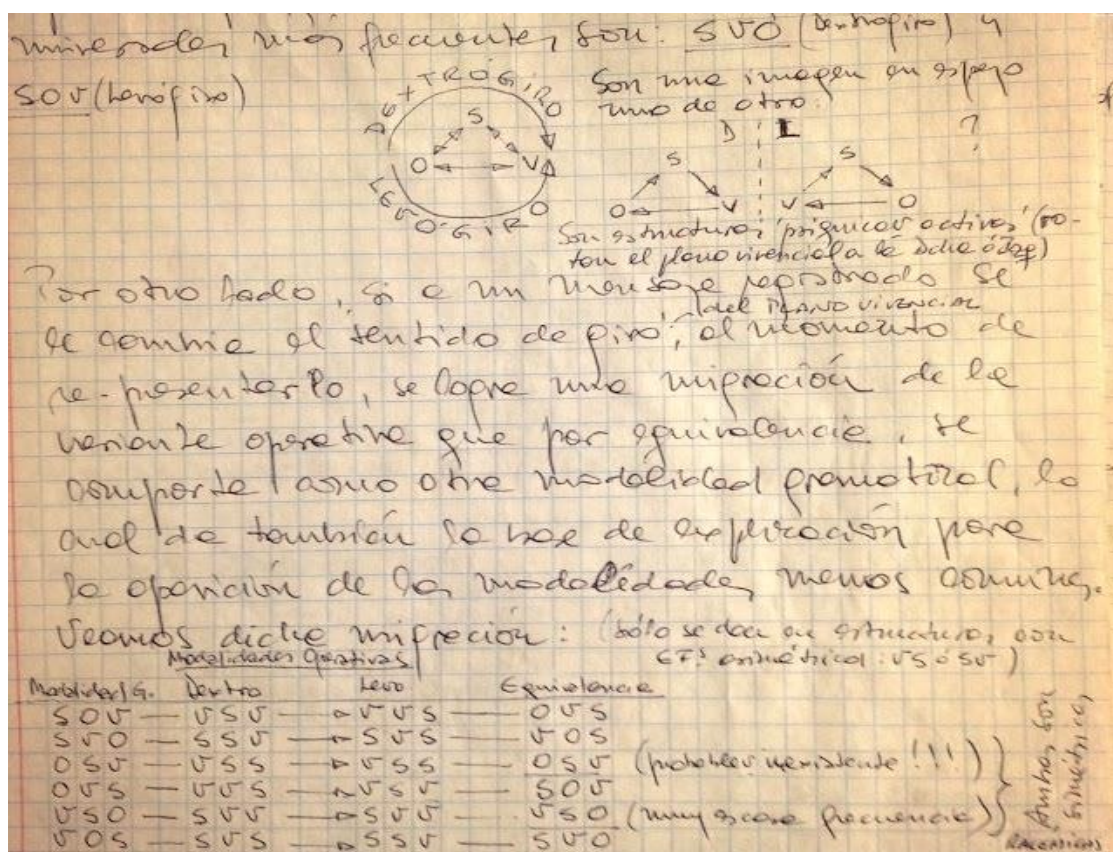 universales más frecuentes son: SVO (Dextrógiro) y
SOV (Levógiro)
DEXTRÓGIRO
S
O V
LEVÓGIRO
Son una imagen en espejo
uno de otro.
D L ?
S S
O V V O
Son estructuras 'psíquicas activas' (ro-
tan el plano vivencial a la Dcha ó Izq)
Por otro lado, si a un mensaje registrado se
del PLANO VIVENCIAL
le cambia el sentido de giro, al momento de
re-presentarlo, se logra una migración de la
variante operativa que por equivalencia, se
comporta como otra modalidad gramatical, lo
cual da también la base de explicación para
la aparición de las modalidades menos comunes.
Veamos dicha migración: (Sólo se dan en estructuras con
asimétrica: VS ó SV)
Modalidades Operativas
Modalidad G. Dextro Levo Equivalencia
SOV — VSV — VVS — OVS
SVO — SSV — SVS — VOS
OSV — VSS — VSS — OSV (inexistente!!!)
OVS — VVS — VSV — SOV
VSO — SVV — SVV — VSO (muy escasa frecuencia)
VOS — SVS — SSV — SVO
Ambas son
simétricas,